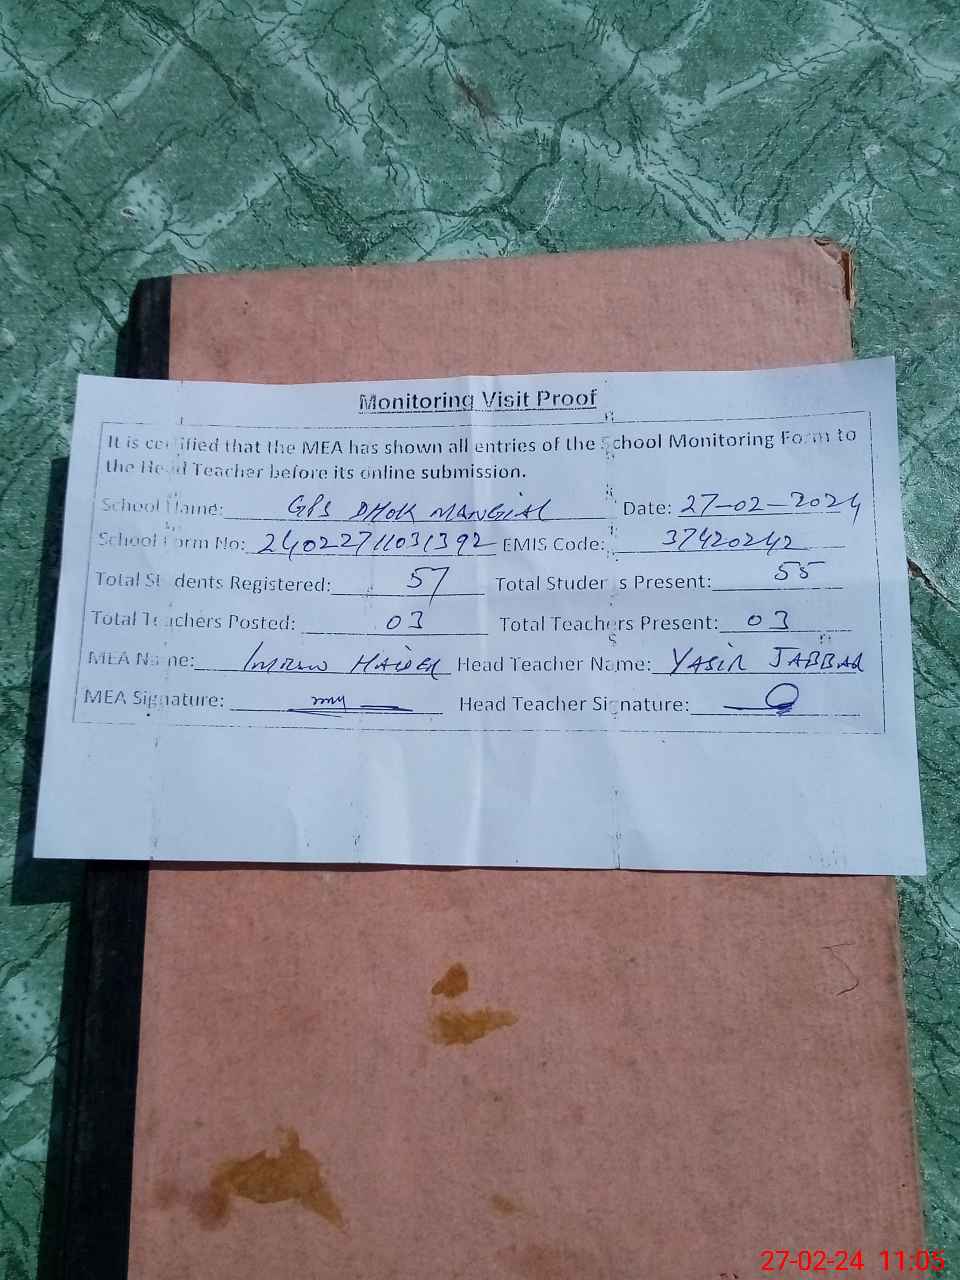 Monitoring Visit Proof
It is certified that the MEA has shown all entries of the School Monitoring Form to
the Head Teacher before its online submission.
School Name: GPS DHOK MANGIAL Date: 27-02-2024
School Form No: 24022711031392 EMIS Code: 37420242
Total Students Registered: 57 Total Students Present: 55
Total Teachers Posted: 03 Total Teachers Present: 03
MEA Name: Imran HAIDER Head Teacher Name: YASIR JABBAR
MEA Signature: Head Teacher Signature:
5
27-02-24 11:05